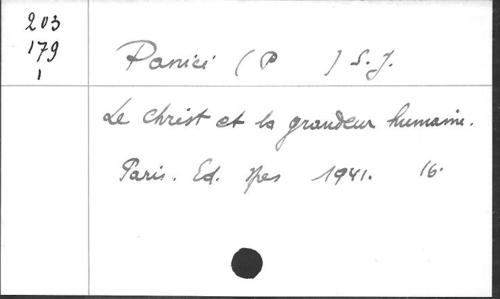 203
179
1
Panici (P ) S.J.
Le Christ et la grandeur humaine.
Paris. Ed. Spes 1941. 16.